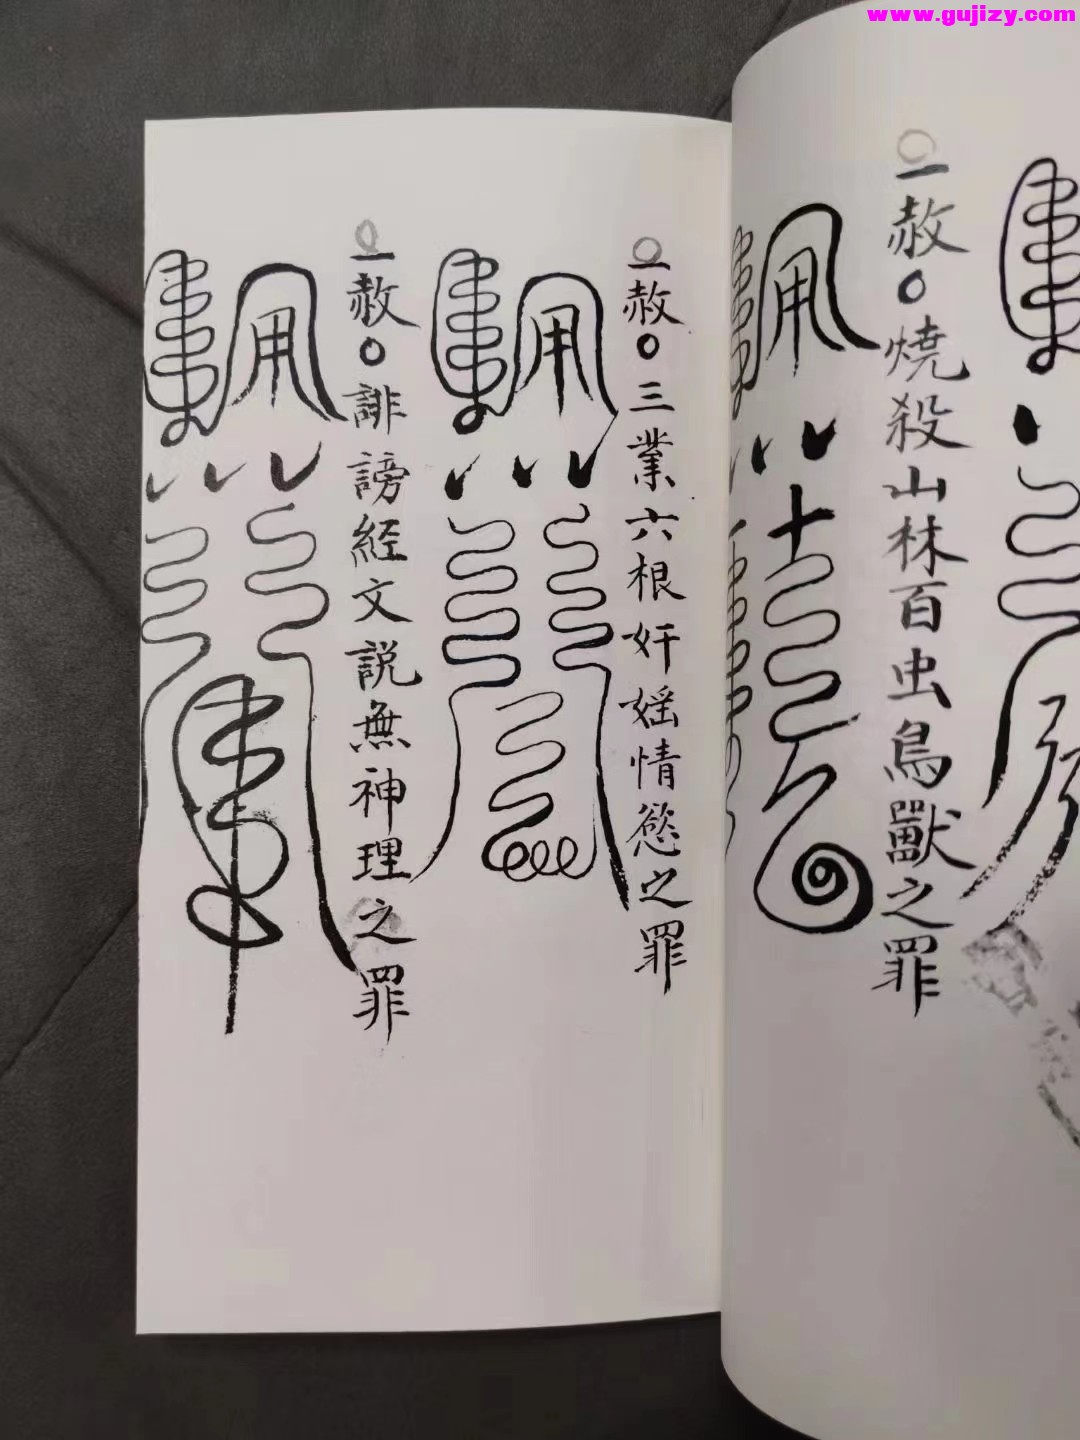 www.gujizy.com
一赦〇燒殺山林百虫鳥獸之罪
一赦〇三業六根奸婬情慾之罪
一赦〇誹謗經文説無神理之罪